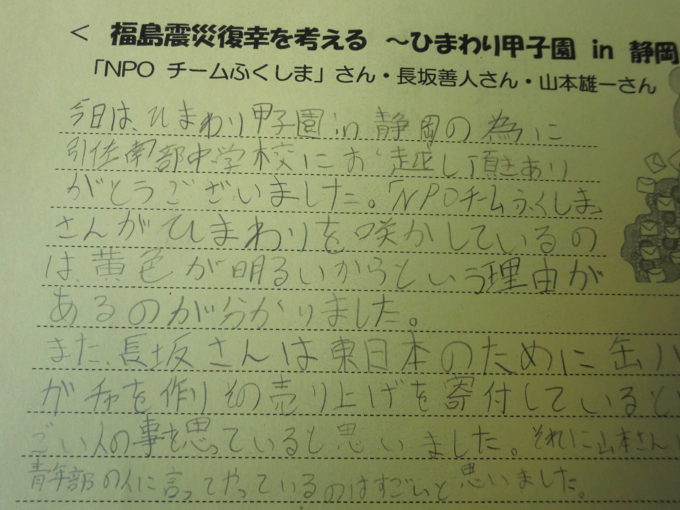 < 福島震災復幸を考える ～ひまわり甲子園 in 静岡
「NPO チームふくしま」さん・長坂善人さん・山本雄一さん
今日は、ひまわり甲子園in静岡の為に
引佐南部中学校にお越し頂きあり
がとうございました。「NPOチームふくしま」
さんがひまわりを咲かしているの
は、黄色が明るいからという理由が
あるのが分かりました。
また、長坂さんは東日本のために缶バ
がチャを作りその売り上げを寄付していると
ごい人の事を思っていると思いました。それに山本さん
青年部の人に言ってやっているのはすごいと思いました。